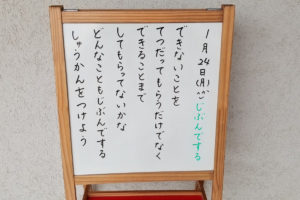 1月24日(月)から じぶんでする
できないことを
てつだってもらうだけでなく
できることまで
してもらってないかな
どんなこともじぶんでする
しゅうかんをつけよう